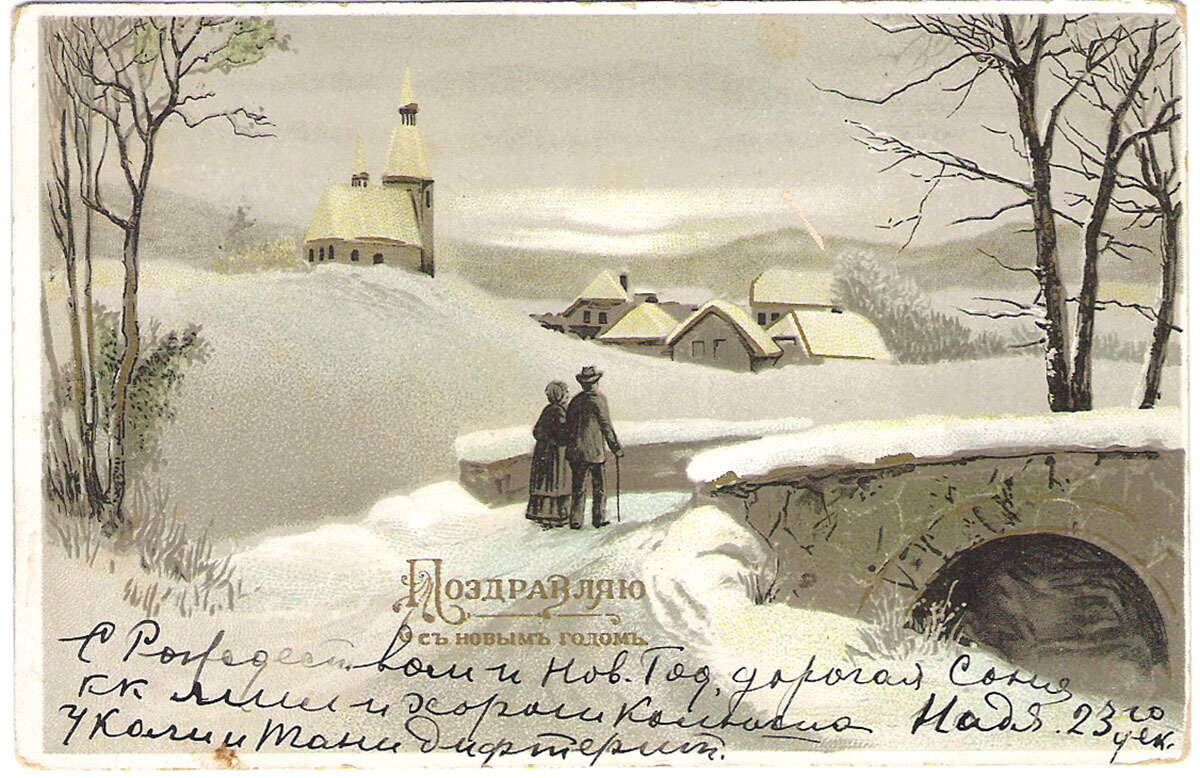 Поздравляю
съ новымъ годомъ.
С Рождеством и Нов. Год, дорогая Соня
и хороши Надя. 23го дек.
У Коли и Тани дифтерит.